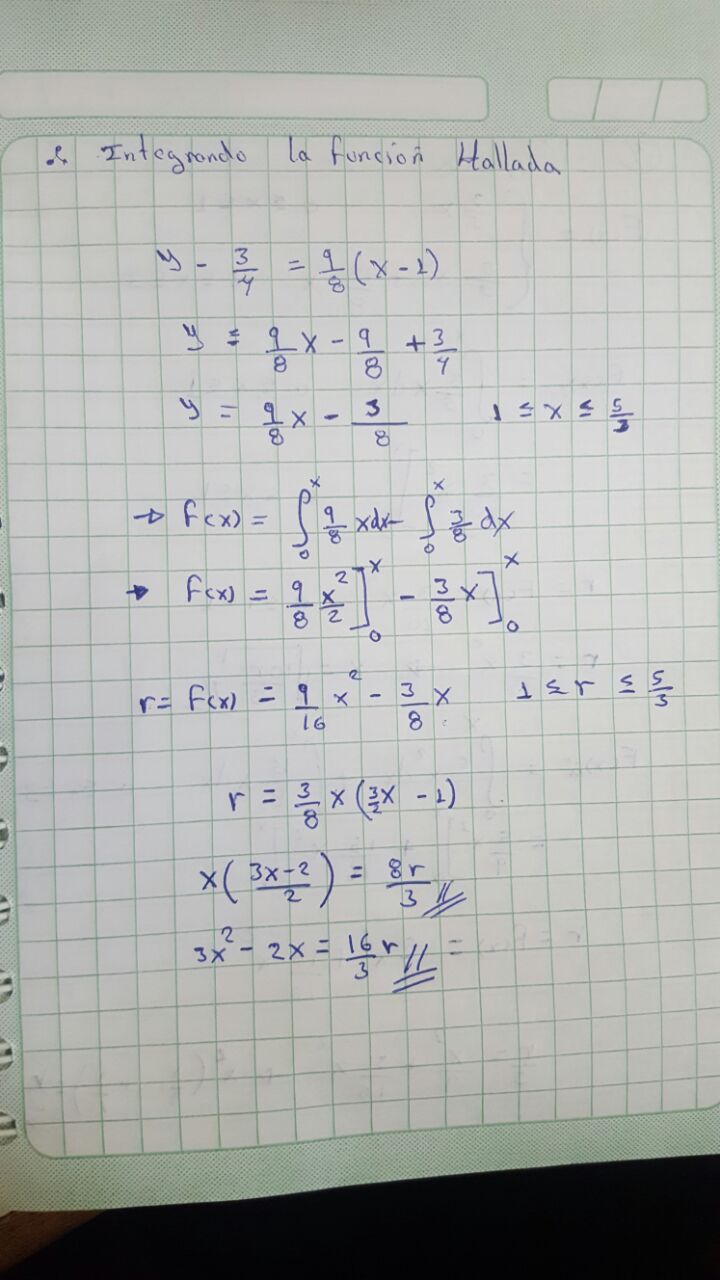 2. Integrando la función Hallada
y - 3/4 = 9/8 (x - 1)
y = 9/8 x - 9/8 + 3/4
y = 9/8 x - 3/8    1 ≤ x ≤ 5/3
→ f(x) = ∫₀ˣ 9/8 x dx - ∫₀ˣ 3/8 dx
→ f(x) = 9/8 x²/2 ]₀ˣ - 3/8 x ]₀ˣ
r = f(x) = 9/16 x² - 3/8 x    1 ≤ r ≤ 5/3
r = 3/8 x (3/2 x - 1)
x ( (3x-2)/2 ) = 8r/3 //
3x² - 2x = 16/3 r // =